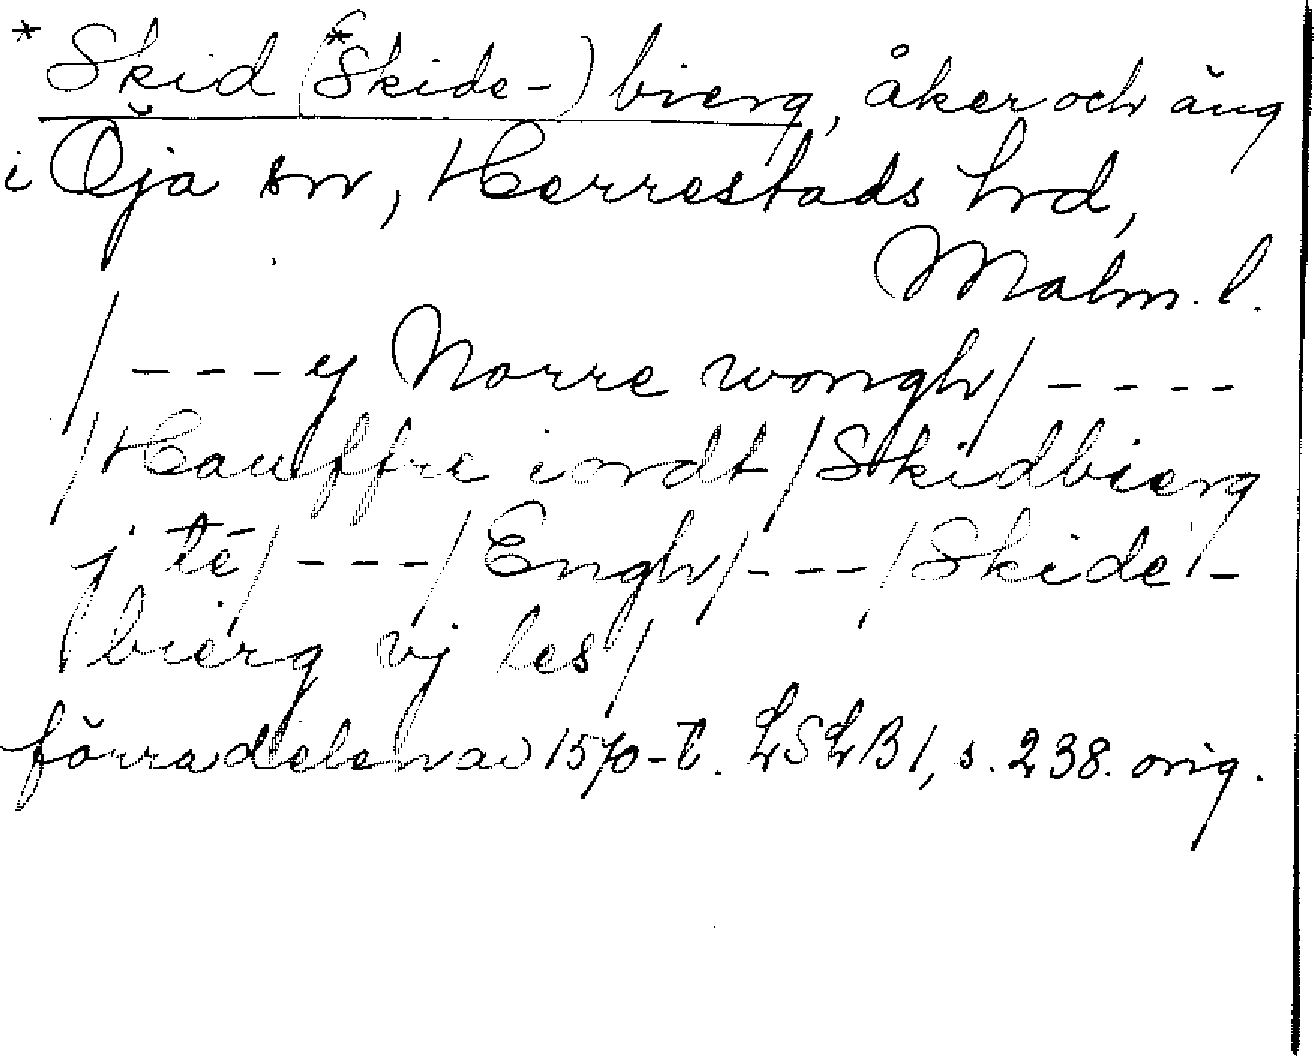 *Skid (*Skide-) bierg, åker och äng
i Öja sn, Herrestads hrd,
Malm. l.
/---y Norre wongh/----
/Hauffre iordt/Skidbierg
j tē/---/Engh/---/Skide-
bierg vj les/
förra delen av 1570-t. LSLB 1, s. 238. orig.